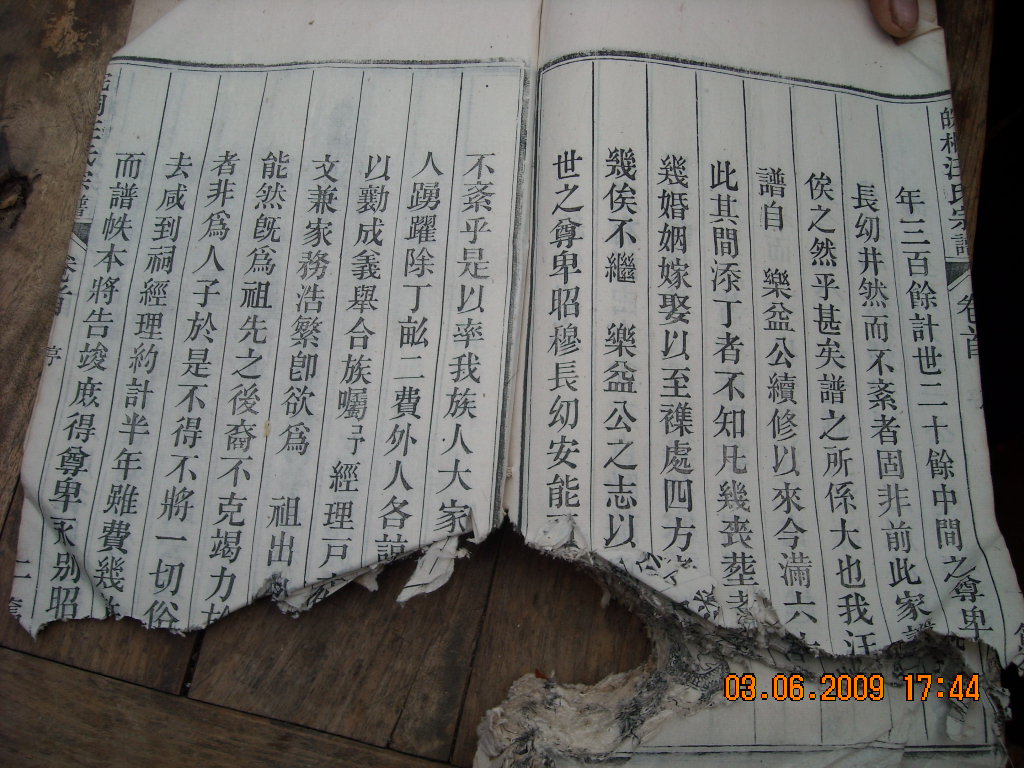 汪氏宗譜
卷首
年三百餘計世二十餘中間之尊卑
長幼井然而不紊者固非前此家譜
俟之然乎甚矣譜之所係大也我汪
譜自 樂盆公續修以來今滿六
此其間添丁者不知凡幾喪塟者
幾婚姻嫁娶以至襍處四方
幾俟不繼 樂益公之志以
世之尊卑昭穆長幼安能
不紊乎是以率我族人大家
人踴躍除丁畝二費外人各
以勷成義舉合族囑 經理戸
文兼家務浩繁卽欲爲
能然旣爲祖先之後裔 祖出
者非爲人子於是不得不克竭力
去咸到祠經理約計半年雖費幾
而譜帙本將告竣庶得尊卑不别昭
宗譜
卷首
亭
二
03.06.2009 17:44